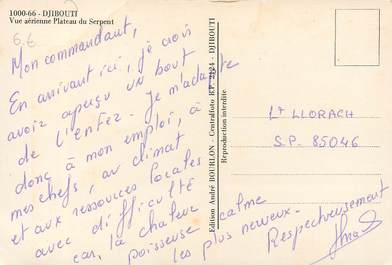 1000-66 - DJIBOUTI
Vue aérienne Plateau du Serpent
6€
Mon commandant,
En arrivant ici, je crois
avoir aperçu un bout
de l'Enfer. Je m'adapte
donc à mon emploi, à
mes chefs, au climat
et aux ressources locales
avec difficulté
car, la chaleur
poisseuse calme
les plus nerveux.
Respectueusement
Edition André BOURLON - Centralfoto B.P. - DJIBOUTI
Reproduction interdite
Lt LLORACH
S.P. 85046